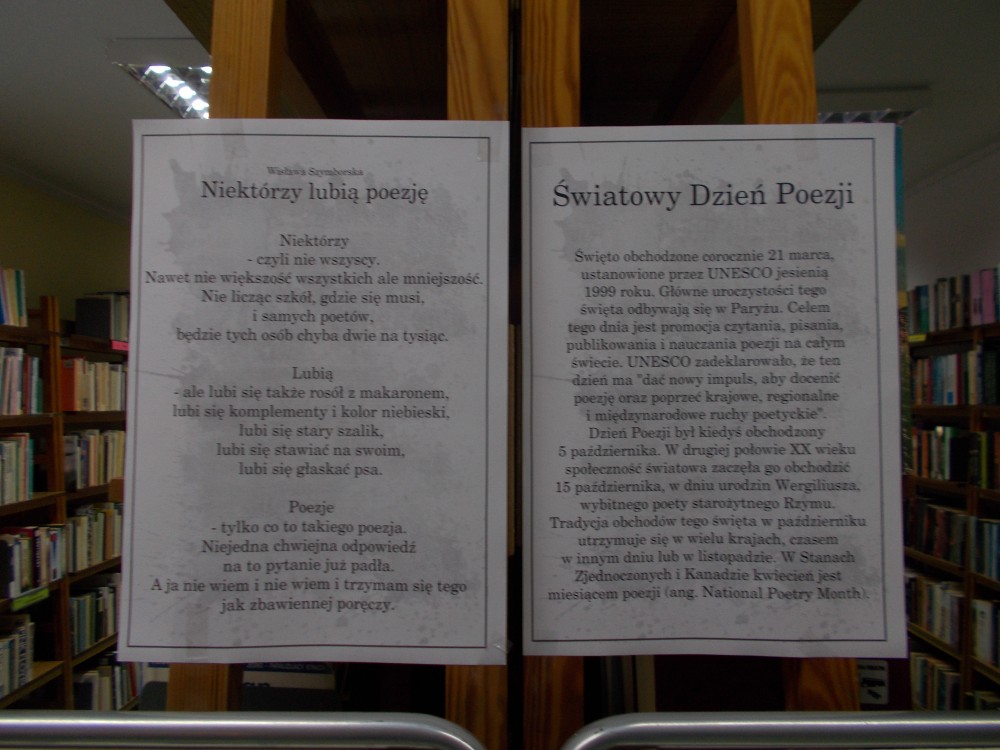 Wisława Szymborska
Niektórzy lubią poezję
Niektórzy
- czyli nie wszyscy.
Nawet nie większość wszystkich ale mniejszość.
Nie licząc szkół, gdzie się musi,
i samych poetów,
będzie tych osób chyba dwie na tysiąc.
Lubią
- ale lubi się także rosół z makaronem,
lubi się komplementy i kolor niebieski,
lubi się stary szalik,
lubi się stawiać na swoim,
lubi się głaskać psa.
Poezje
- tylko co to takiego poezja.
Niejedna chwiejna odpowiedź
na to pytanie już padła.
A ja nie wiem i nie wiem i trzymam się tego
jak zbawiennej poręczy.
Światowy Dzień Poezji
Święto obchodzone corocznie 21 marca,
ustanowione przez UNESCO jesienią
1999 roku. Główne uroczystości tego
święta odbywają się w Paryżu. Celem
tego dnia jest promocja czytania, pisania,
publikowania i nauczania poezji na całym
świecie. UNESCO zadeklarowało, że ten
dzień ma "dać nowy impuls, aby docenić
poezję oraz poprzeć krajowe, regionalne
i międzynarodowe ruchy poetyckie".
Dzień Poezji był kiedyś obchodzony
5 października. W drugiej połowie XX wieku
społeczność światowa zaczęła go obchodzić
15 października, w dniu urodzin Wergiliusza,
wybitnego poety starożytnego Rzymu.
Tradycja obchodów tego święta w październiku
utrzymuje się w wielu krajach, czasem
w innym dniu lub w listopadzie. W Stanach
Zjednoczonych i Kanadzie kwiecień jest
miesiącem poezji (ang. National Poetry Month).